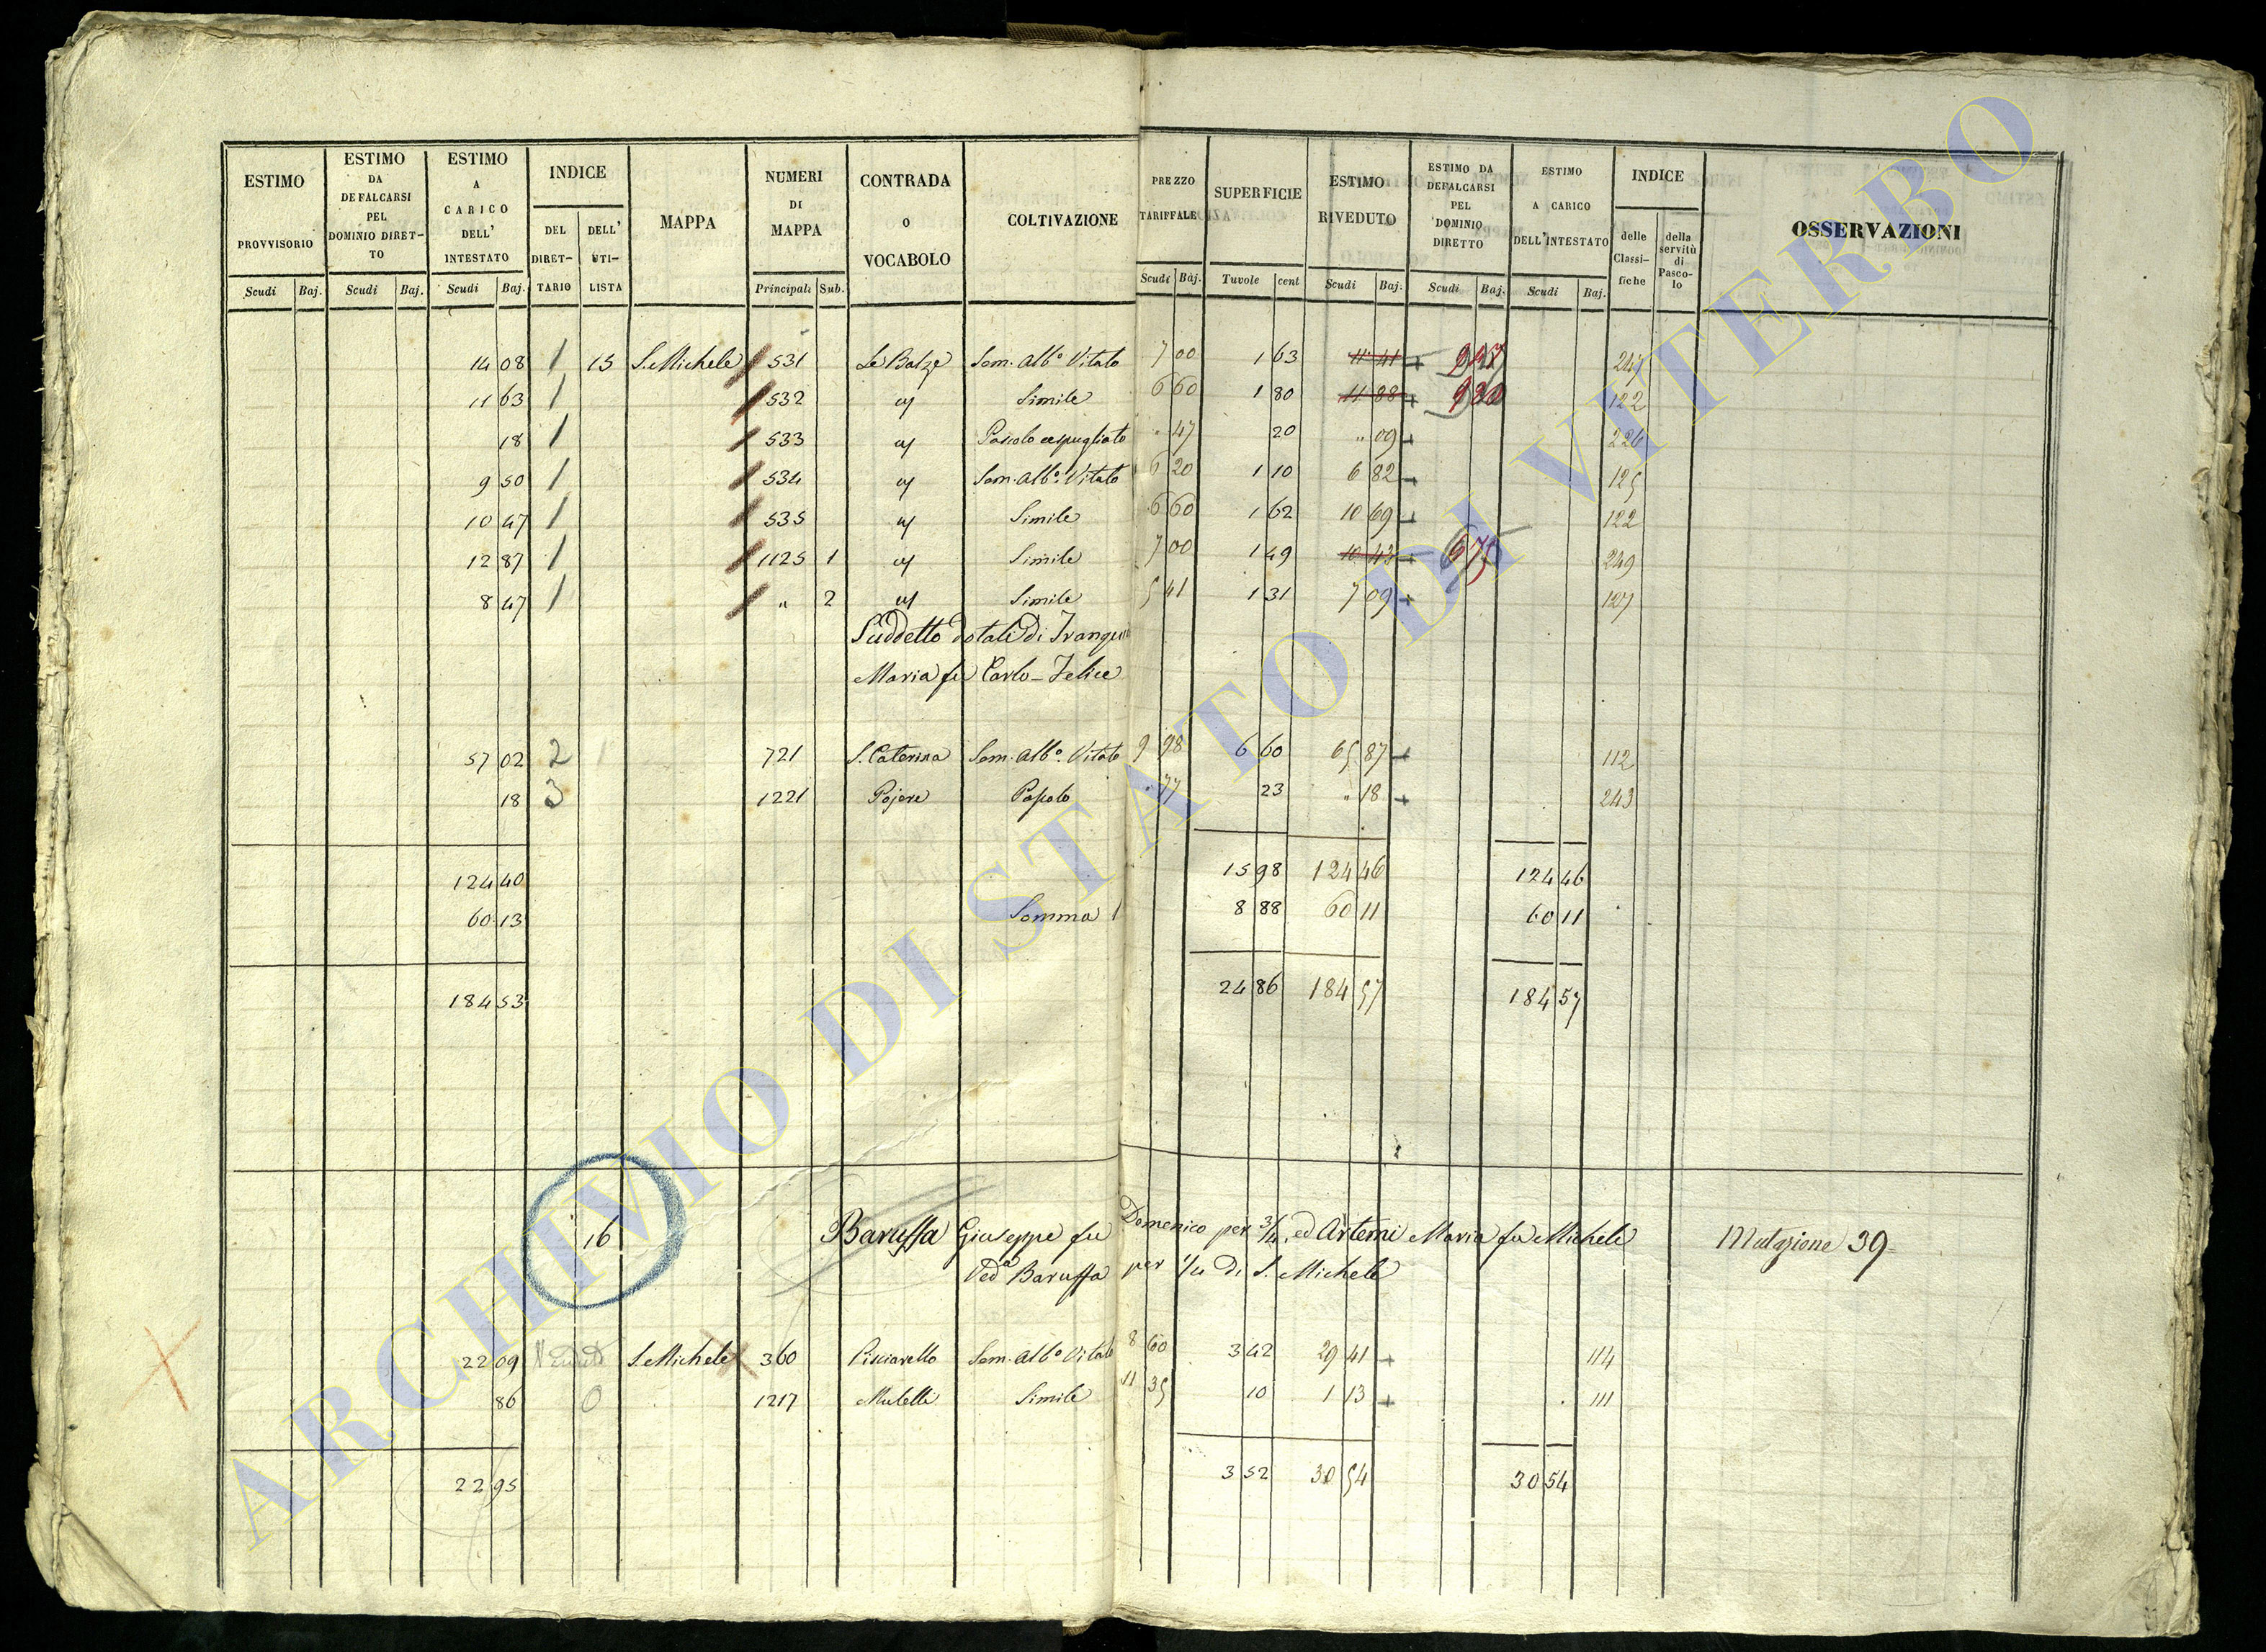 ESTIMO PROVVISORIO Scudi Baj.
ESTIMO DA DEFALCARSI PEL DOMINIO DIRET-TO Scudi Baj.
ESTIMO A CARICO DELL' INTESTATO Scudi Baj.
INDICE DEL DIRET-TARIO DELL' UTI-LISTA
MAPPA
NUMERI DI MAPPA Principali Sub.
CONTRADA O VOCABOLO
COLTIVAZIONE
PREZZO TARIFFALE Scudi Baj.
SUPERFICIE Tavole cent
ESTIMO RIVEDUTO Scudi Baj.
ESTIMO DA DEFALCARSI PEL DOMINIO DIRETTO Scudi Baj.
ESTIMO A CARICO DELL'INTESTATO Scudi Baj.
INDICE delle Classi-fiche della servitù di Pasco-lo
OSSERVAZIONI
14 08 1 15 S. Michele 531 Le Balze Sem. Alb.º Vitato 7 00 1 63 11 41 247
11 63 1 532 " Simile 6 60 1 80 11 88 122
18 1 533 " Pascolo cespugliato " 47 20 " 09 226
9 50 1 534 " Sem. Alb.º Vitato 6 20 1 10 6 82 125
10 47 1 535 " Simile 6 60 1 62 10 69 122
12 87 1 1125 1 " Simile 7 00 1 49 10 43 249
8 47 1 " 2 " Simile 5 41 1 31 7 09 127
Suddetto dotali di
Maria fu Carlo-Felice
57 02 2 721 S. Caterina Sem. Alb.º Vitato 9 98 6 60 65 87 112
18 3 1221 Pojere Pascolo " 77 23 " 18 243
124 40 15 98 124 46 124 46
60 13 Somma 8 88 60 11 60 11
184 53 24 86 184 57 184 57
16 Baruffa Giuseppe fu Domenico per 3/4, ed Artemi Maria fu Michele Mutazione 39
Ved.ª Baruffa per 1/4 di S. Michele
22 09 S. Michele 360 Pisciarello Sem. Alb.º Vitato 8 60 3 42 29 41 114
86 0 1217 Mulelli Simile 11 35 10 1 13 111
22 95 3 52 30 54 30 54
ARCHIVIO DI STATO DI VITERBO